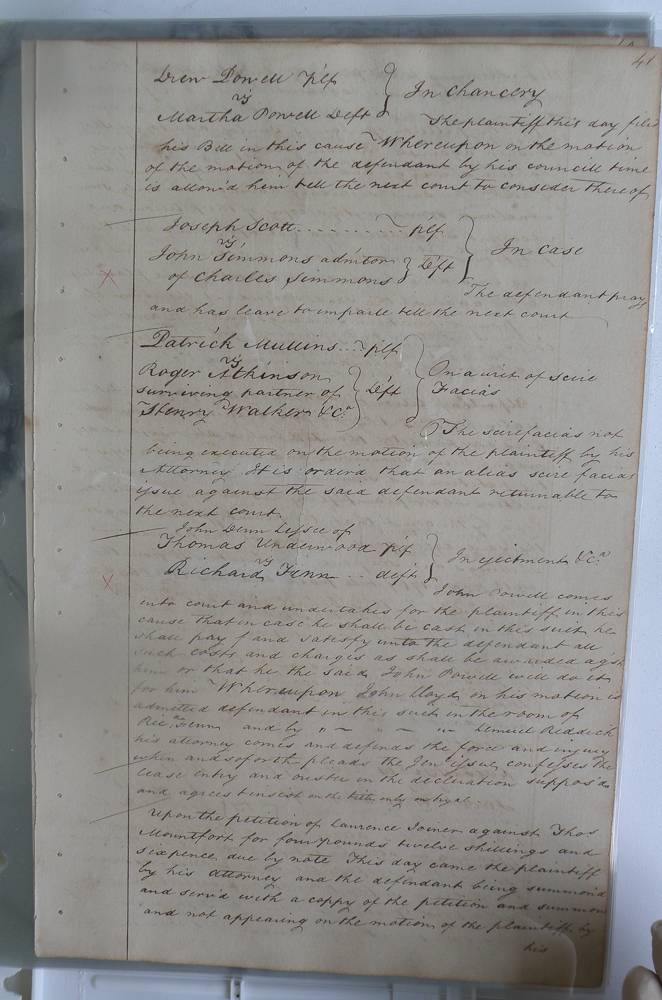 41
Drew Powell plf
vs
Martha Powell Deft
In Chancery
The plaintiff this day filed
his Bill in this cause Whereupon on the motion
of the motion of the defendant by his councill time
is allow'd him till the next court to consider thereof
Joseph Scott plf
vs
John Simmons admitor
of Charles Simmons Deft
In Case
The defendant pray
and has leave to imparle till the next court
Patrick Mullins plf
vs
Roger Atkinson
surviving partner of Deft
Henry Walker &Ca
On a writ of scire
Facias
The scire facias not
being executed on the motion of the plaintiff by his
Attorney It is orderd that an alias scire facias
issue against the said defendant returnable to
the next court
John Denn Lessee of
Thomas Underwood plf
vs
Richard Fenn deft
In ejectment &Ca
John Powell comes
into court and undertakes for the plaintiff in this
cause that in case he shall be cast in this suit he
shall pay and satisfy unto the defendant all
such costs and charges as shall be awarded agst
him or that he the said John Powell will do it
for him Whereupon John Lloyd on his motion is
admitted defendant in this suit in the room of
Ric. Fenn and by Lemuel Reddick
his attorney comes and defends the force and injury
when and soforth pleads the Genl issue, confesses the
lease entry and ouster in the declaration supposd
and agrees to insist on the title only on tryal
Upon the petition of Laurence Joiner against Thos
Mountfort for four pounds twelve shillings and
sixpence due by note This day came the plaintiff
by his attorney and the defendant being summond
and servd with a coppy of the petition and summons
and not appearing on the motion of the plaintiff by
his